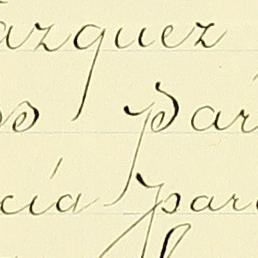 azquez
os Par
cía para